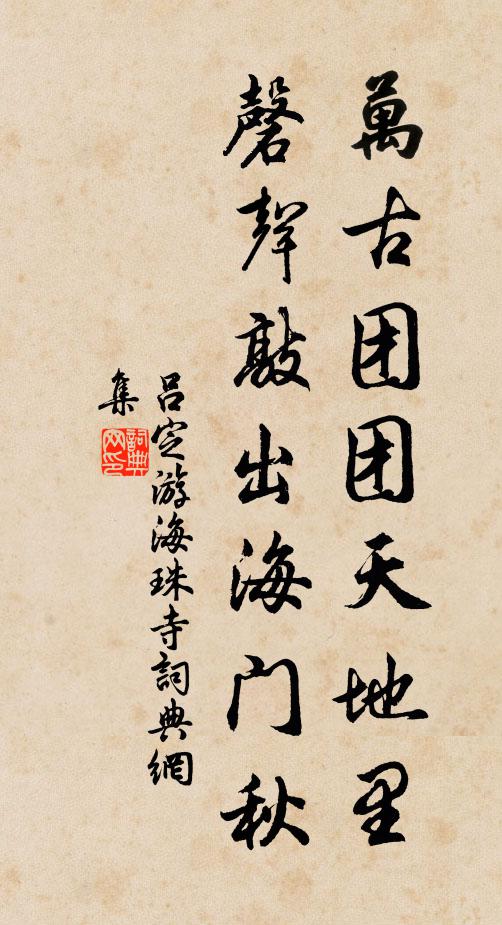 萬古团团天地里
磬聲敲出海门秋
吕定游海珠寺詞典網
集
詞典网印